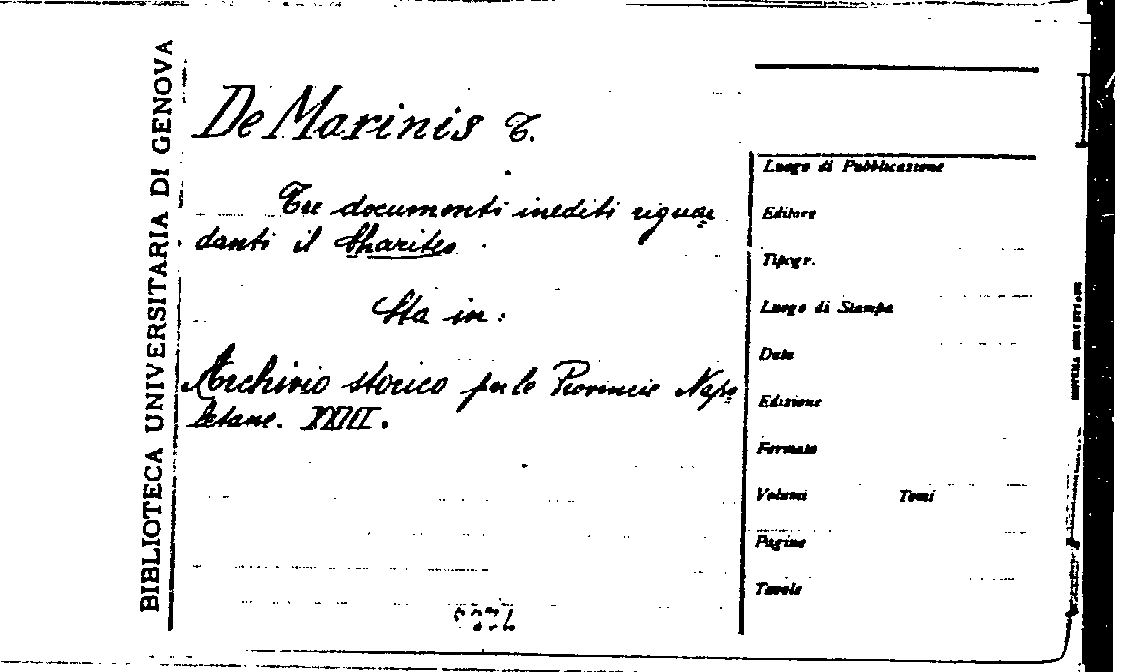 BIBLIOTECA UNIVERSITARIA DI GENOVA
De Marinis T.
Tre documenti inediti riguar
danti il Chariteo.
Sta in:
Archivio storico per le Provincie Napo
letane. XXIII.
Luogo di Pubblicazione
Editore
Tipogr.
Luogo di Stampa
Data
Edizione
Formato
Volumi Tomi
Pagine
Tavole